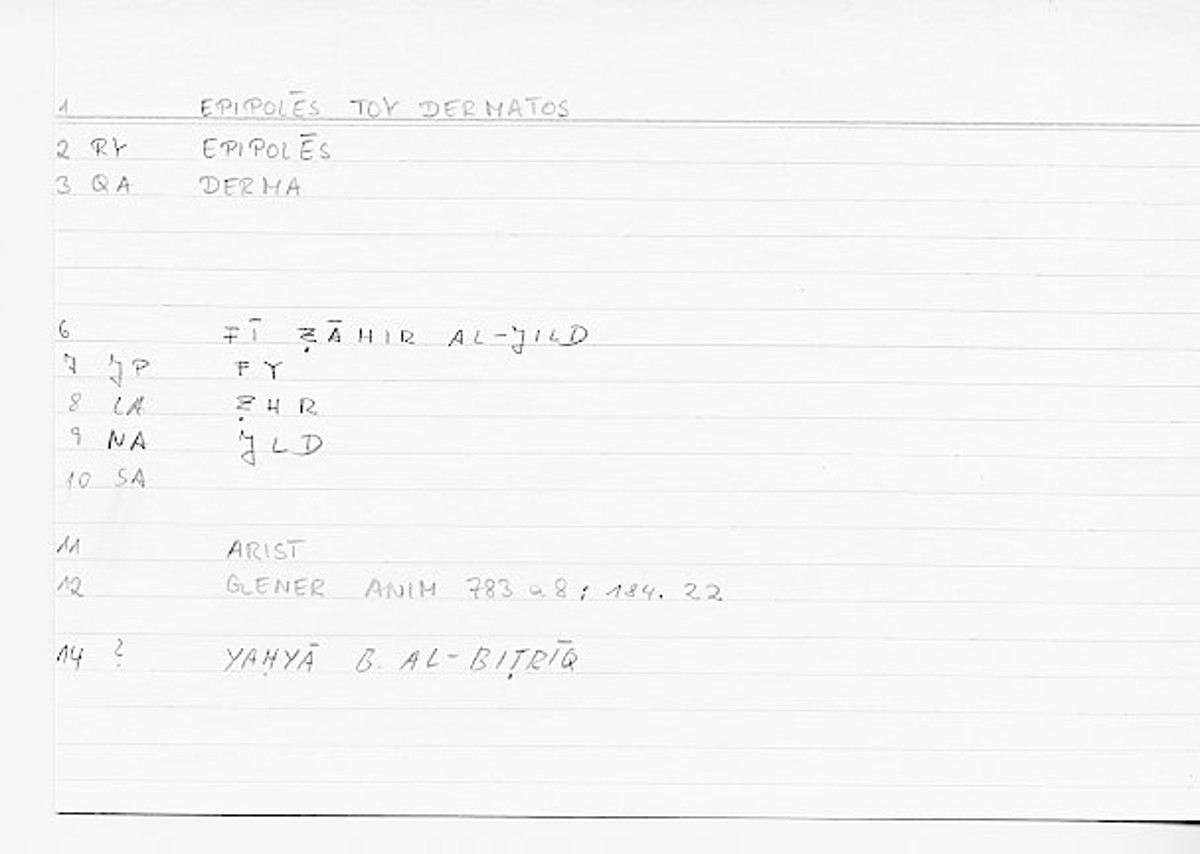 1 EPIPOLĒS TOY DERMATOS
2 RY EPIPOLĒS
3 QA DERMA
6 FĪ ẒĀHIR AL-JILD
7 JP FY
8 LA ẒHR
9 NA JLD
10 SA
11 ARIST
12 GENER ANIM 783 a 8; 184.22
14 ? YAḤYĀ B. AL-BIṬRĪQ